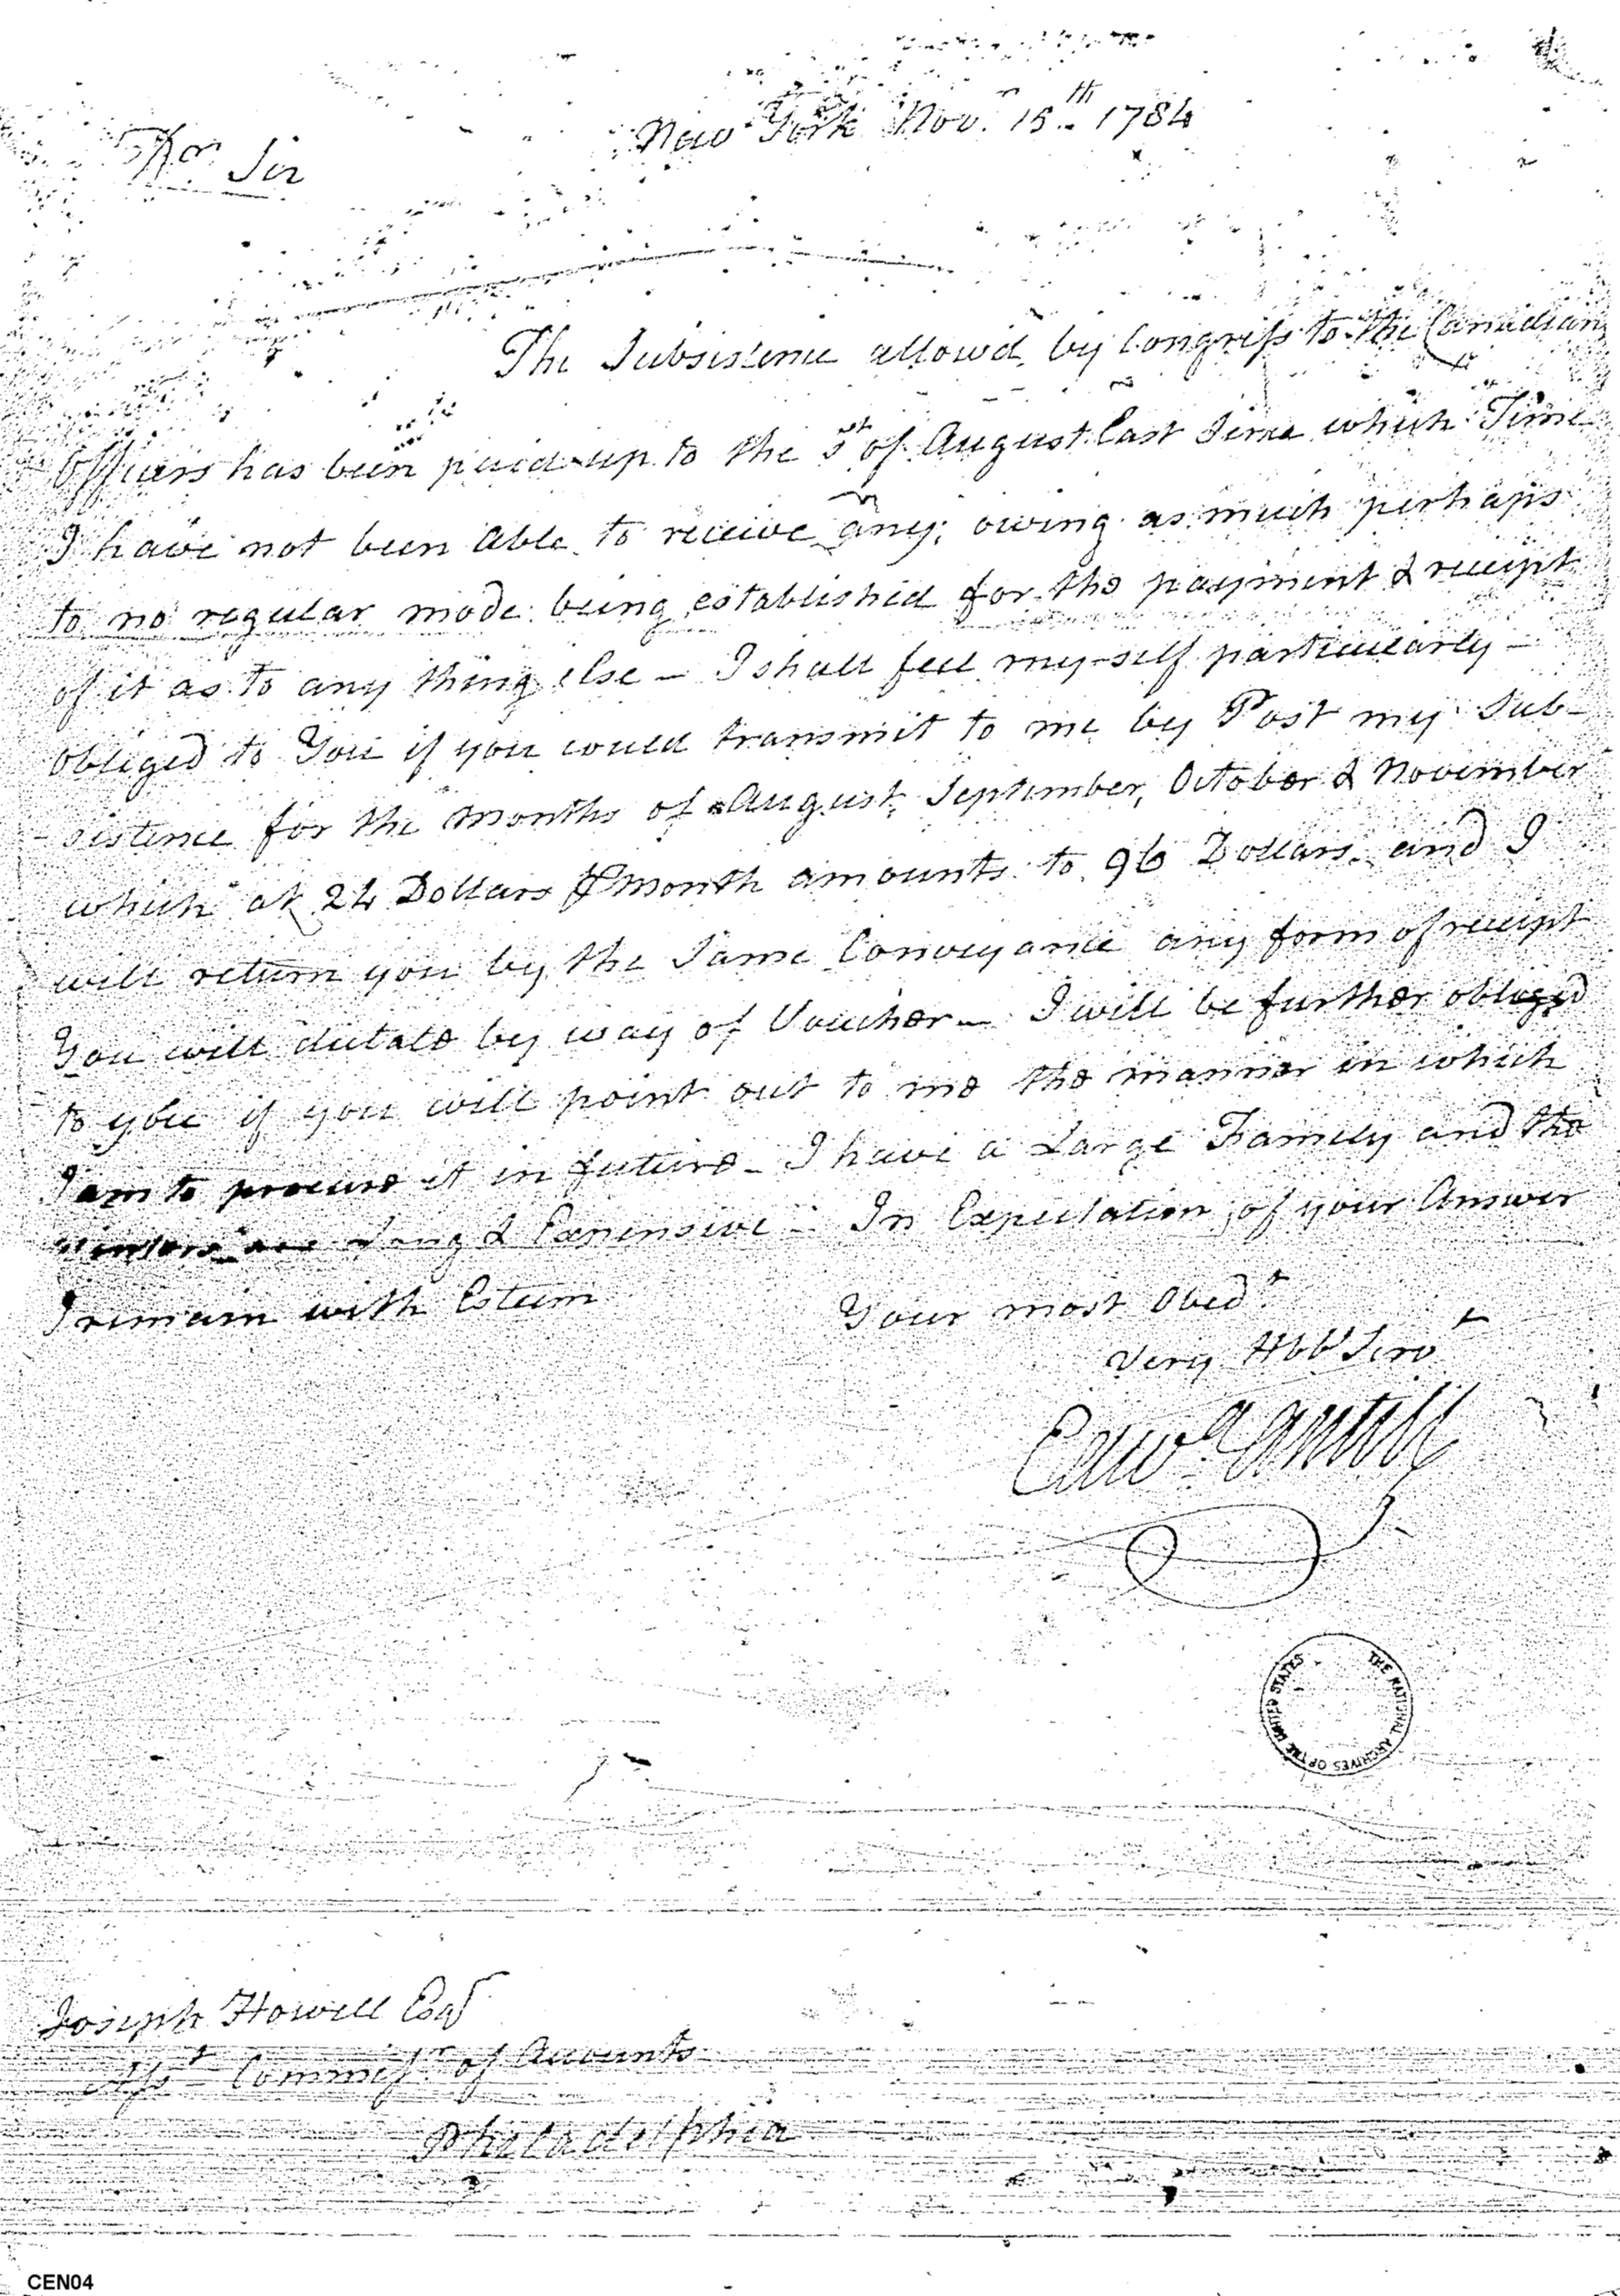 New York Nov. 15th 1784
Sir
The Subsistence allowd by Congress to the Canadian
Officers has been paid up to the of August last Since which Time
I have not been able to receive any; owing as much perhaps
to no regular mode being established for the payment & receipt
of it as to any thing else – I shall feel my-self particularly –
obliged to You if you would transmit to me by Post my Sub-
sistence for the months of August, September, October & November
which at 24 Dollars ⅌ month amounts to 96 Dollars and I
will return you by the Same Conveyance any form of receipt
You will dictate by way of Voucher – I will be further obliged
to you if you will point out to me the manner in which
I am to procure it in future – I have a Large Family and the
Winters are Long & Expensive – In Expectation of your Answer
I remain with Esteem
Your most Obedt
Very Hble Servt
Edwd Antill
THE NATIONAL ARCHIVES OF THE UNITED STATES
Joseph Howell Esqr
Asst Commissr of Accounts
Philadelphia
CEN04